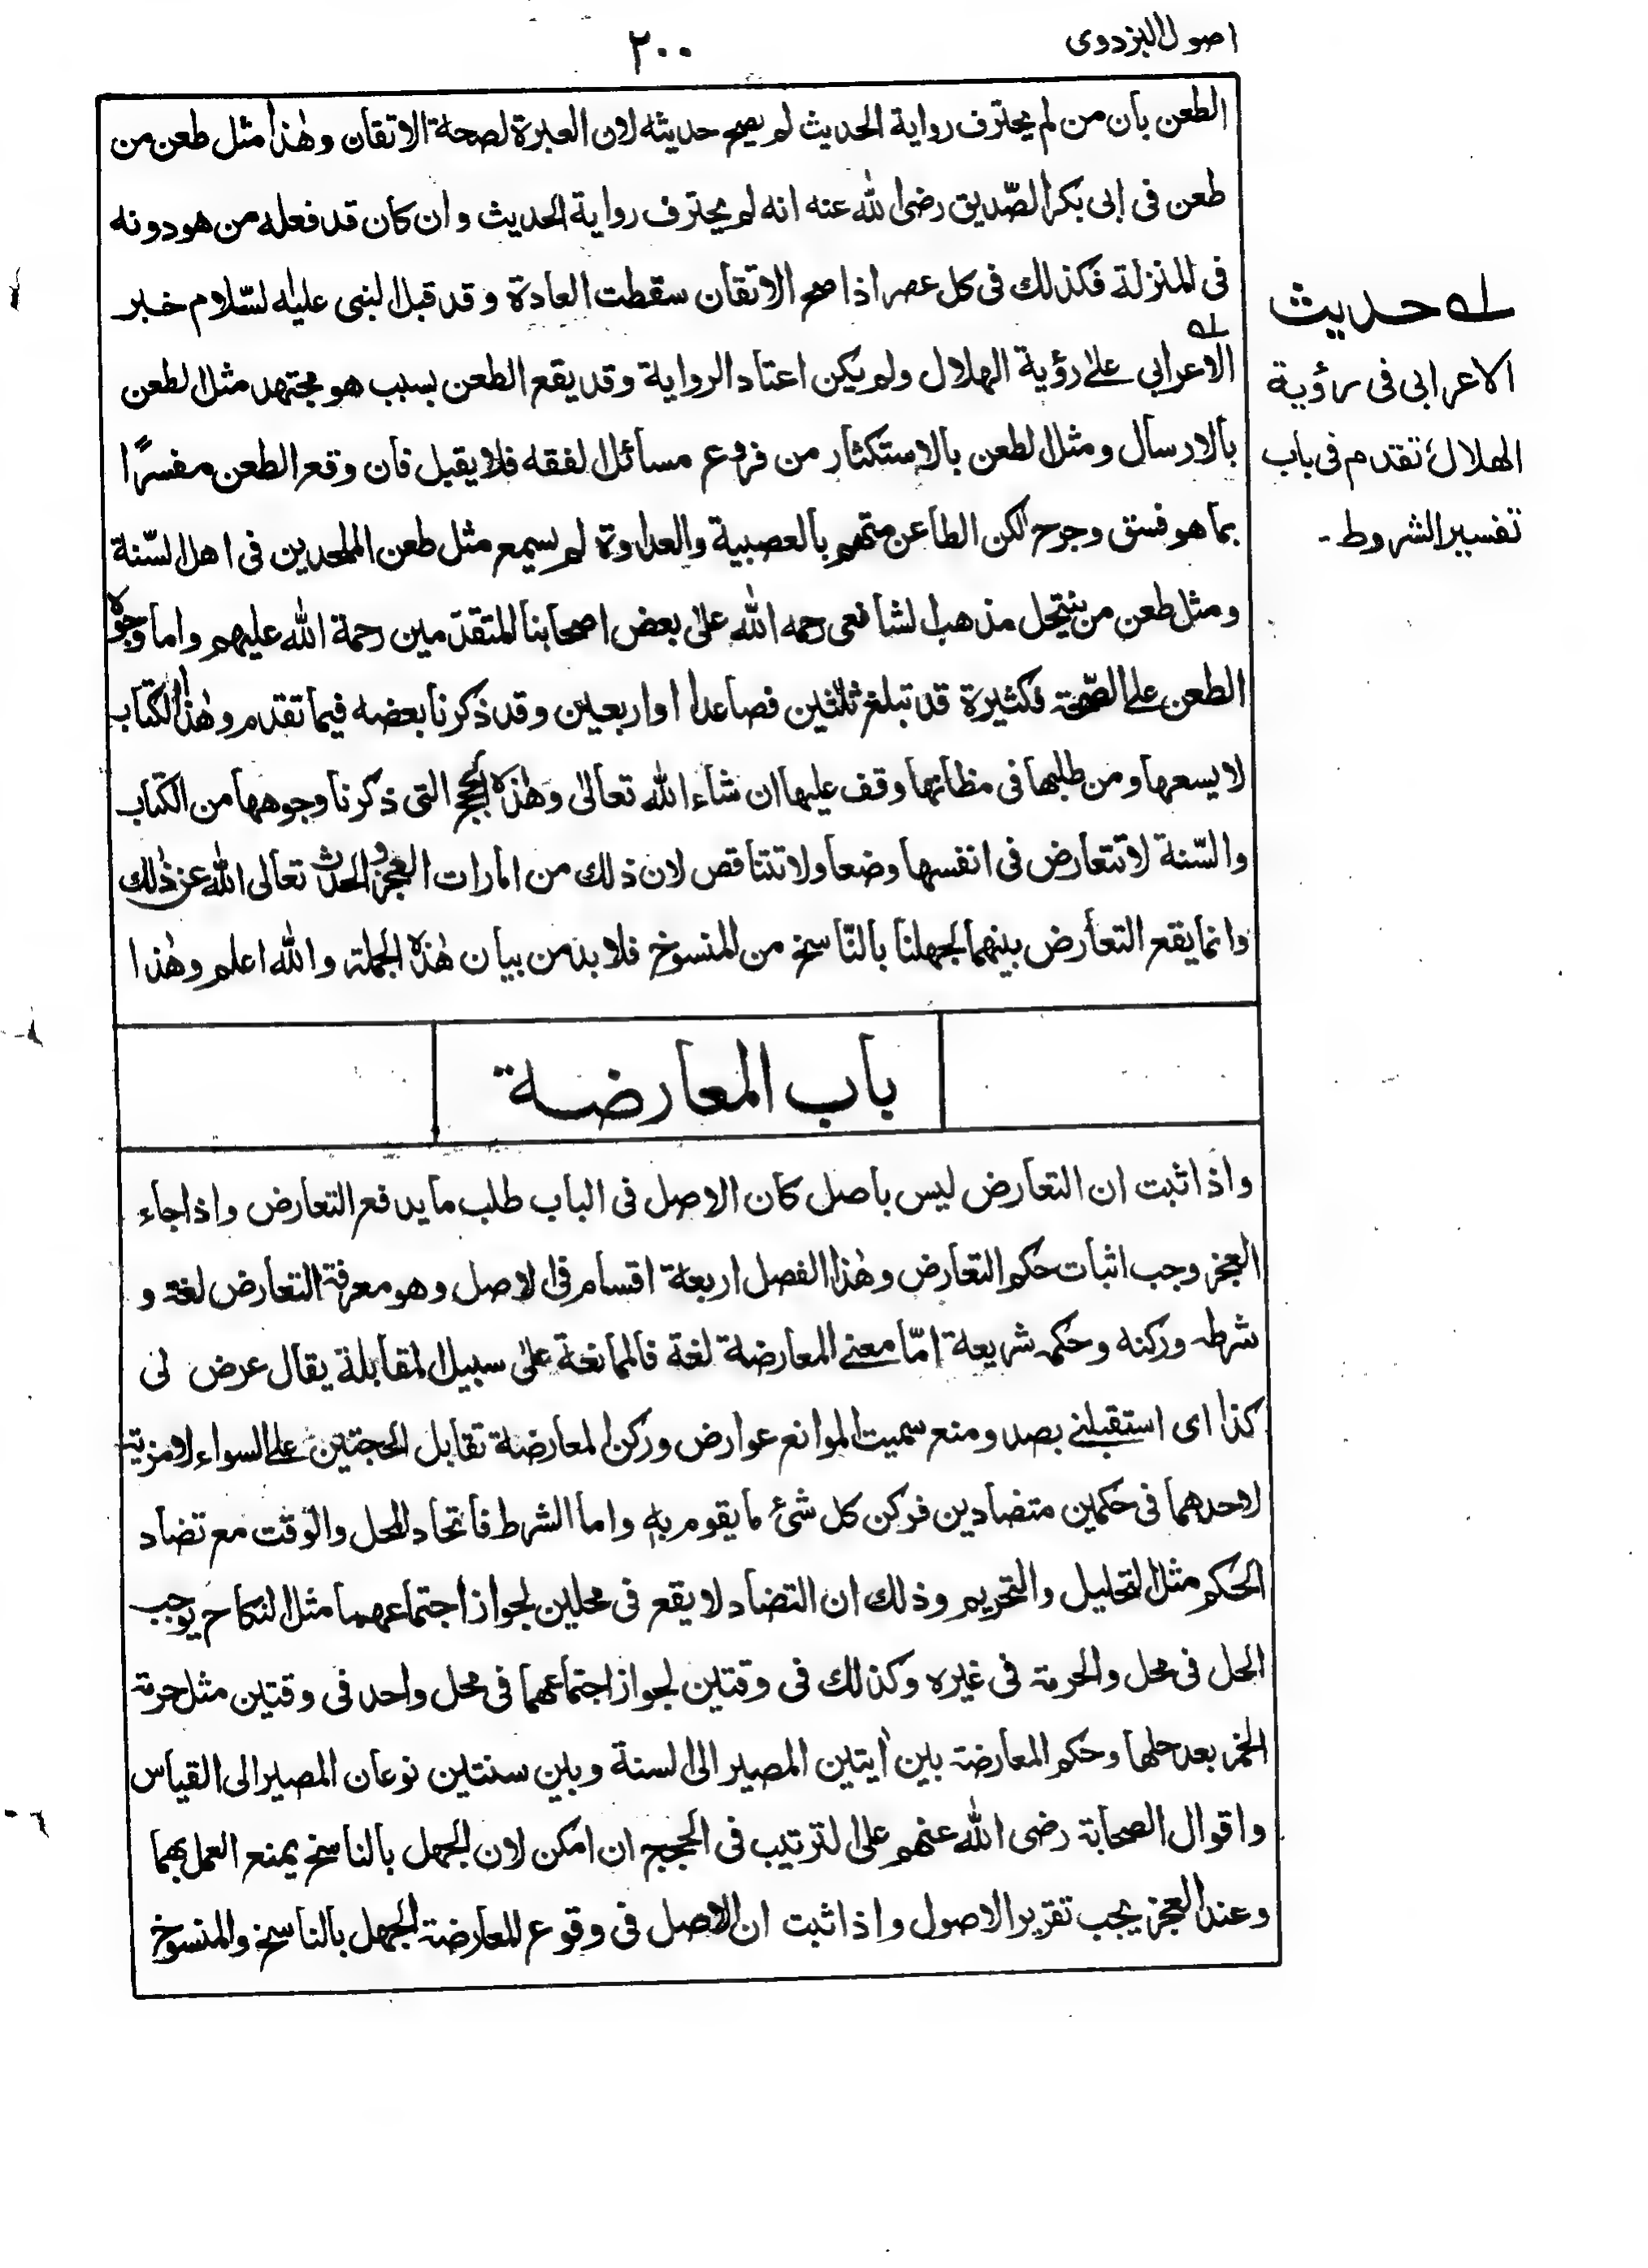 اصول البزدوی
۲۰۰
الطعن بأن من لم يحترف رواية الحديث لم يصح حديثه لان العبرة لصحة الاتقان وهٰذا مثل طعن من
طعن فى ابى بكر الصّديق رضى الله عنه انه لم يحترف رواية الحديث وان كان قد فعله من هو دونه
فى المنزلة فكذلك فى كل عصر اذا صح الاتقان سقطت العادة وقد قبل النبى عليه السّلام خبر
الاعرابى علىٰ رؤية الهلال ولم يكن اعتاد الرواية وقد يقع الطعن بسبب هو مجتهد مثل الطعن
بالارسال ومثل الطعن بالاستكثار من فروع مسائل الفقه فلا يقبل فأن وقع الطعن مفسرًا
بما هو فسق وجرح لكن الطاعن متهم بالعصبية والعداوة لم يسمع مثل طعن الملحدين فى اهل السّنة
ومثل طعن من ينتحل مذهب الشافعى رحمه الله علىٰ بعض اصحابنا المتقدمين رحمة الله عليهم واما وجوه
الطعن على الصّحة فكثيرة قد تبلغ ثلٰثين فصاعدا او اربعين وقد ذكرنا بعضه فيما تقدم وهٰذا الكتاب
لا يسعها ومن طلبها فى مظانها وقف عليها ان شاء الله تعالىٰ وهٰذه الحجج التى ذكرنا وجوهها من الكتاب
والسّنة لا تتعارض فى انفسها وضعا ولا تتناقض لان ذلك من امارات العجز و الحدث تعالى الله عن ذٰلك
وانما يقع التعارض بينهما لجهلنا بالنّاسخ من المنسوخ فلا بد من بيان هٰذه الجملة والله اعلم وهٰذا
باب المعارضة
واذا ثبت ان التعارض ليس باصل كان الاصل فى الباب طلب ما يدفع التعارض واذا جاء
العجز وجب اثبات حكم التعارض وهٰذا الفصل اربعة اقسام فى الاصل وهو معرفة التعارض لغة و
شرطه وركنه وحكمه شريعة امّا معنى المعارضة لغة فالممانعة علىٰ سبيل المقابلة يقال عرض لى
كذا اى استقبلنى بصد ومنع سميت الموانع عوارض وركن المعارضة تقابل الحجتين على السواء لا مزية
لاحدهما فى حكمين متضادين فركن كل شئ ما يقوم به واما الشرط فاتحاد المحل والوقت مع تضاد
الحكم مثل التحليل والتحريم وذلك ان التضاد لا يقع فى محلين لجواز اجتماعهما مثل النكاح يوجب
الحل فى محل والحرمة فى غيره وكذلك فى وقتين لجواز اجتماعهما فى محل واحد فى وقتين مثل حرمة
الخمر بعد حلها وحكم المعارضة بين اٰيتين المصير الى السنة وبين سنتين نوعان المصير الى القياس
واقوال الصحابة رضى الله عنهم على الترتيب فى الحجج ان امكن لان الجهل بالناسخ يمنع العمل بهما
وعند العجز يجب تقرير الاصول واذا ثبت ان الاصل فى وقوع المعارضة الجهل بالناسخ والمنسوخ
له حديث
الاعرابى فى رؤية
الهلال تقدم فى باب
تفسير الشروط۔